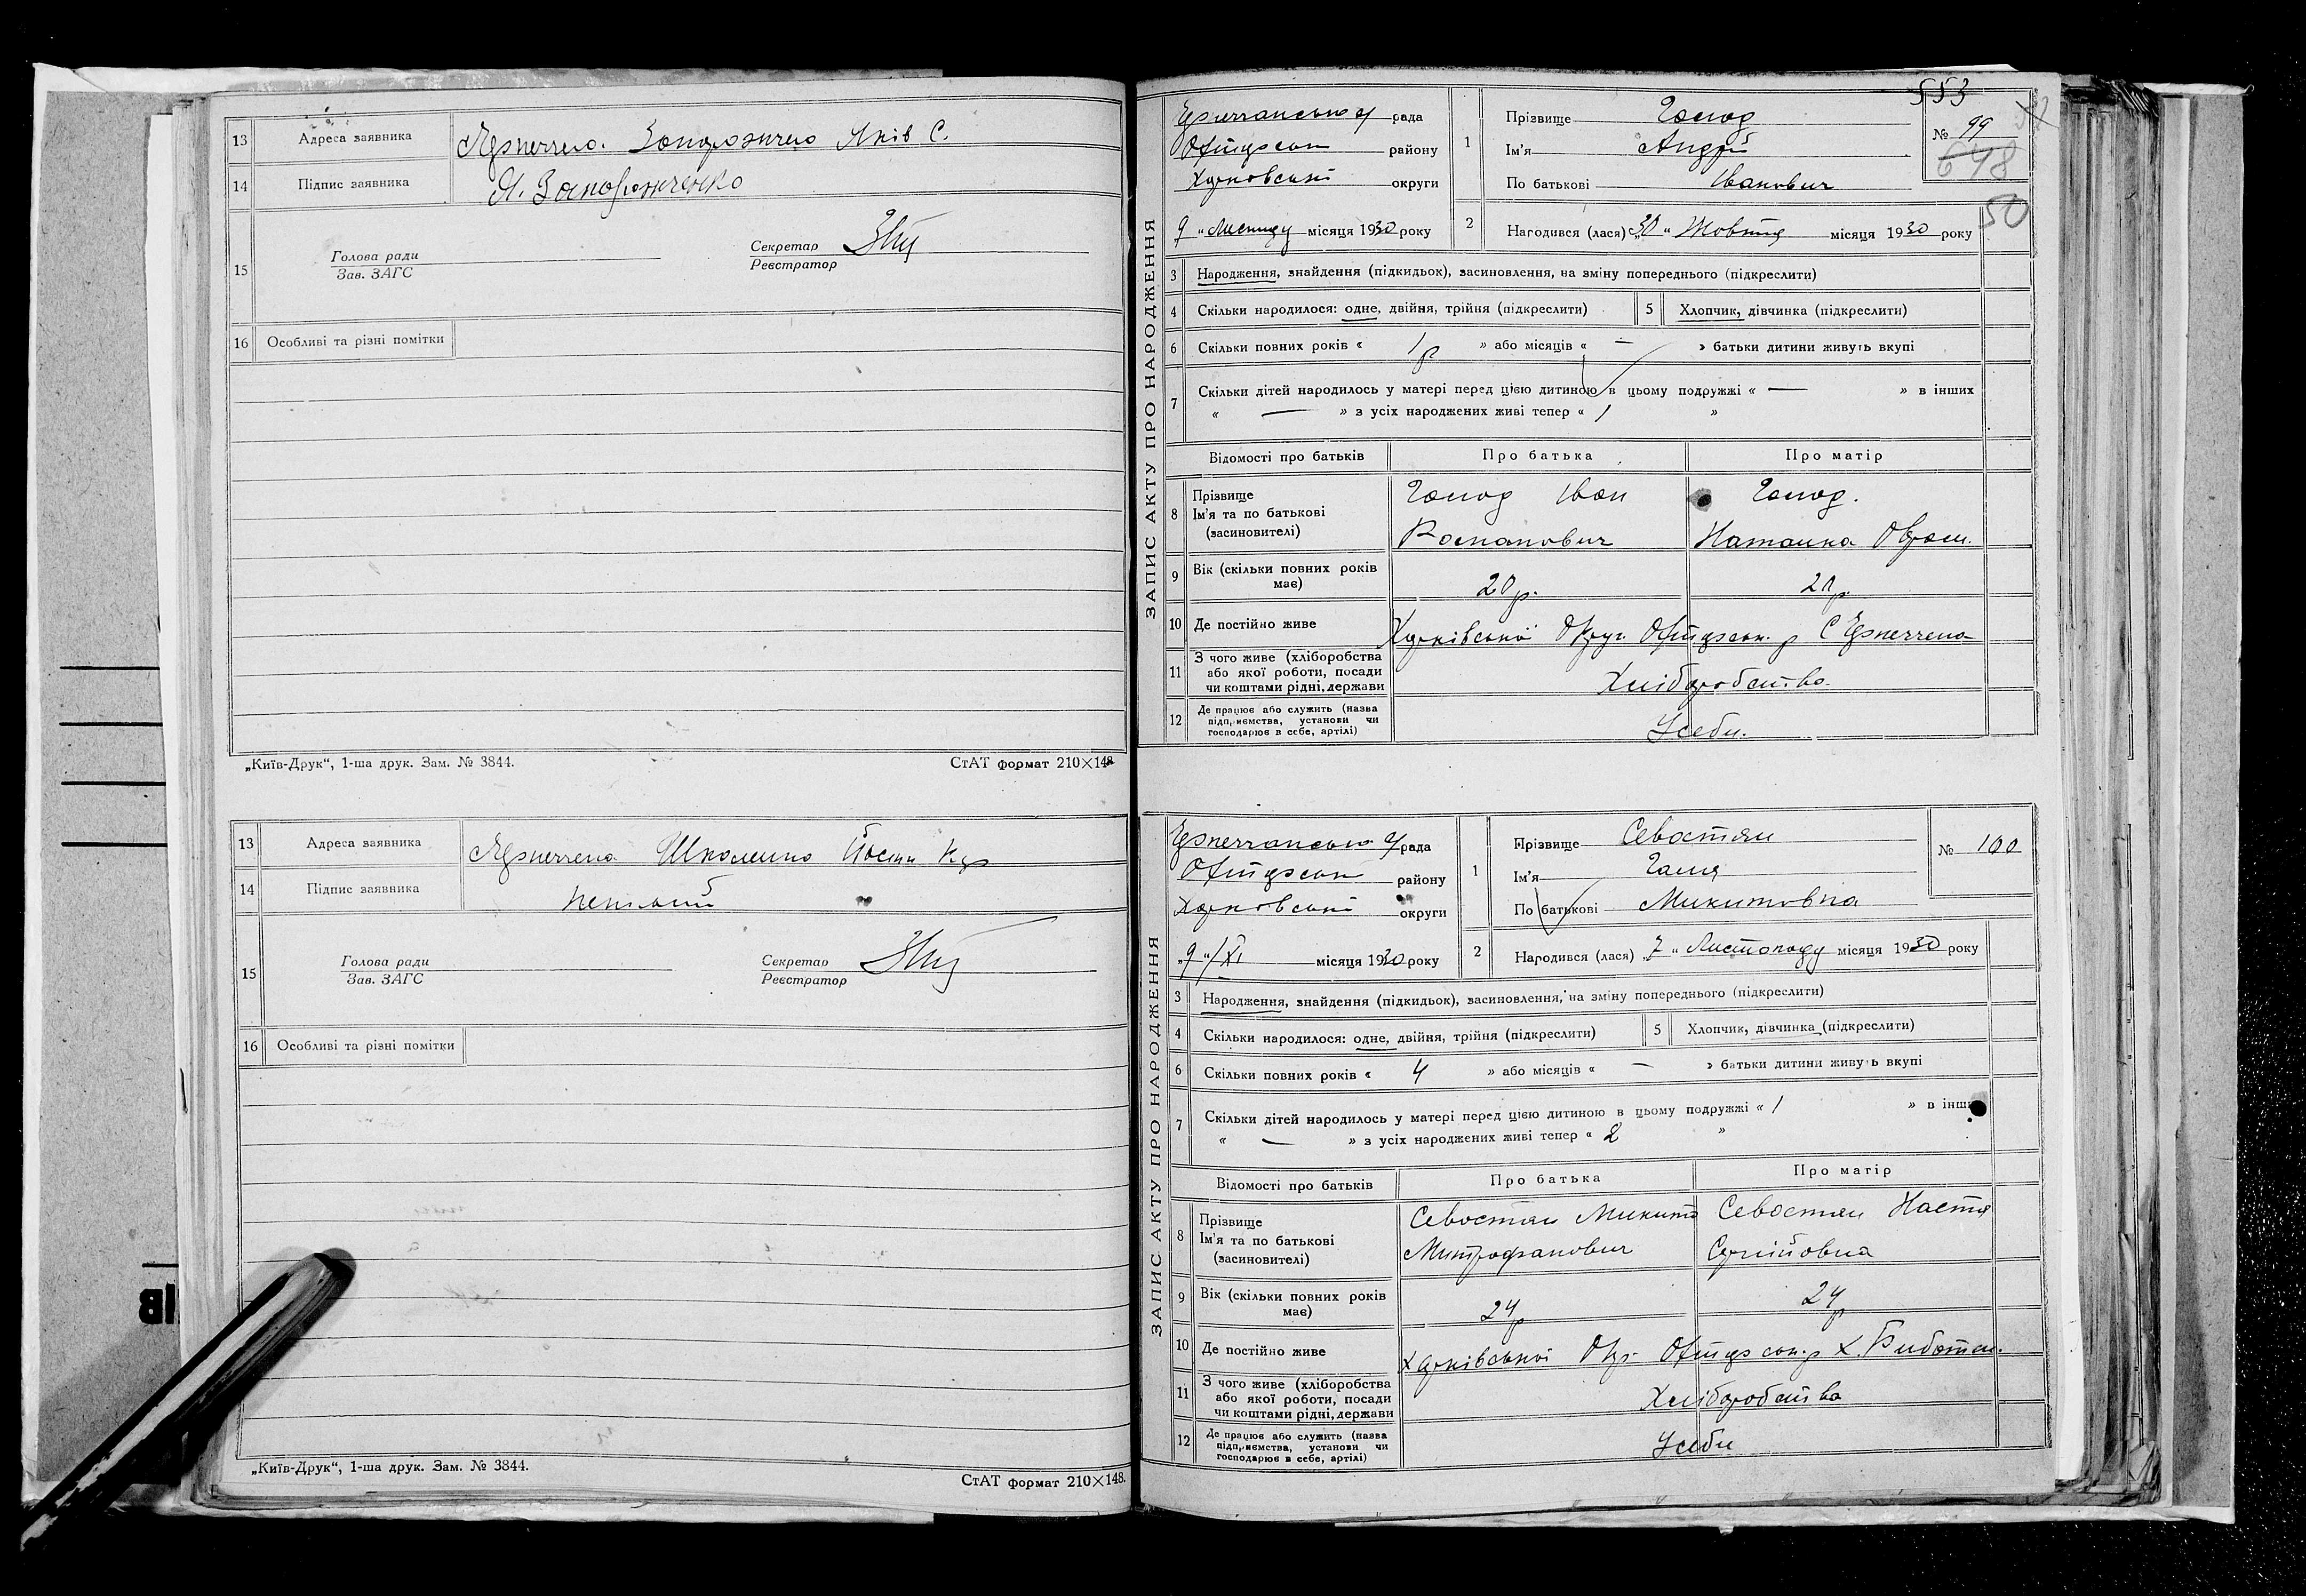 13 Адреса заявника Запорожченко Яків С.
14 Підпис заявника Я. Запорожченко
15 Голова ради Секретар
Зав. ЗАГС Реєстратор
16 Особливі та різні помітки
„Київ-Друк“, 1-ша друк. Зам. № 3844. СтАТ формат 210×148
13 Адреса заявника
14 Підпис заявника
15 Голова ради Секретар
Зав. ЗАГС Реєстратор
16 Особливі та різні помітки
„Київ-Друк“, 1-ша друк. Зам. № 3844. СтАТ формат 210×148.
553
ЗАПИС АКТУ ПРО НАРОДЖЕННЯ
рада
району
Харковської округи
9 „ місяця 1930 року
1 Прізвище
Ім'я Андрій
По батькові Іванович
№ 99
648
50
2 Народився (лася) „30 “ Жовтня місяця 1930 року
3 Народження, знайдення (підкидьок), засиновлення, на зміну попереднього (підкреслити)
4 Скільки народилося: одне, двійня, трійня (підкреслити) 5 Хлопчик, дівчинка (підкреслити)
6 Скільки повних років « 1р » або місяців « — » батьки дитини живуть вкупі
7 Скільки дітей народилось у матері перед цією дитиною в цьому подружжі « — » в інших
« — » з усіх народжених живі тепер « 1 »
Відомості про батьків Про батька Про матір
8 Прізвище Іван
Ім'я та по батькові
(засиновителі) Наталка
9 Вік (скільки повних років 20р. 20р
має)
10 Де постійно живе Харківської Округ.
11 З чого живе (хліборобства
або якої роботи, посади Хліборобство.
чи коштами рідні, держави
12 Де працює або служить (назва
підприємства, установи чи Усебе.
господарює в себе, артілі)
ЗАПИС АКТУ ПРО НАРОДЖЕННЯ
рада
району
Харковської округи
„9“/XI місяця 1930 року
1 Прізвище Севостян
Ім'я Галя
По батькові Микитовна
№ 100
2 Народився (лася) „7 “ Листопаду місяця 1930 року
3 Народження, знайдення (підкидьок), засиновлення, на зміну попереднього (підкреслити)
4 Скільки народилося: одне, двійня, трійня (підкреслити) 5 Хлопчик, дівчинка (підкреслити)
6 Скільки повних років « 4 » або місяців « — » батьки дитини живуть вкупі
7 Скільки дітей народилось у матері перед цією дитиною в цьому подружжі « 1 » в інших
« — » з усіх народжених живі тепер « 2 »
Відомості про батьків Про батька Про матір
8 Прізвище Севостян Микита Севостян Настя
Ім'я та по батькові Митрофанович Сергійовна
(засиновителі)
9 Вік (скільки повних років 24р 24р
має)
10 Де постійно живе Харківської Окр.
11 З чого живе (хліборобства
або якої роботи, посади Хліборобство
чи коштами рідні, держави
12 Де працює або служить (назва
підприємства, установи чи Усебе
господарює в себе, артілі)